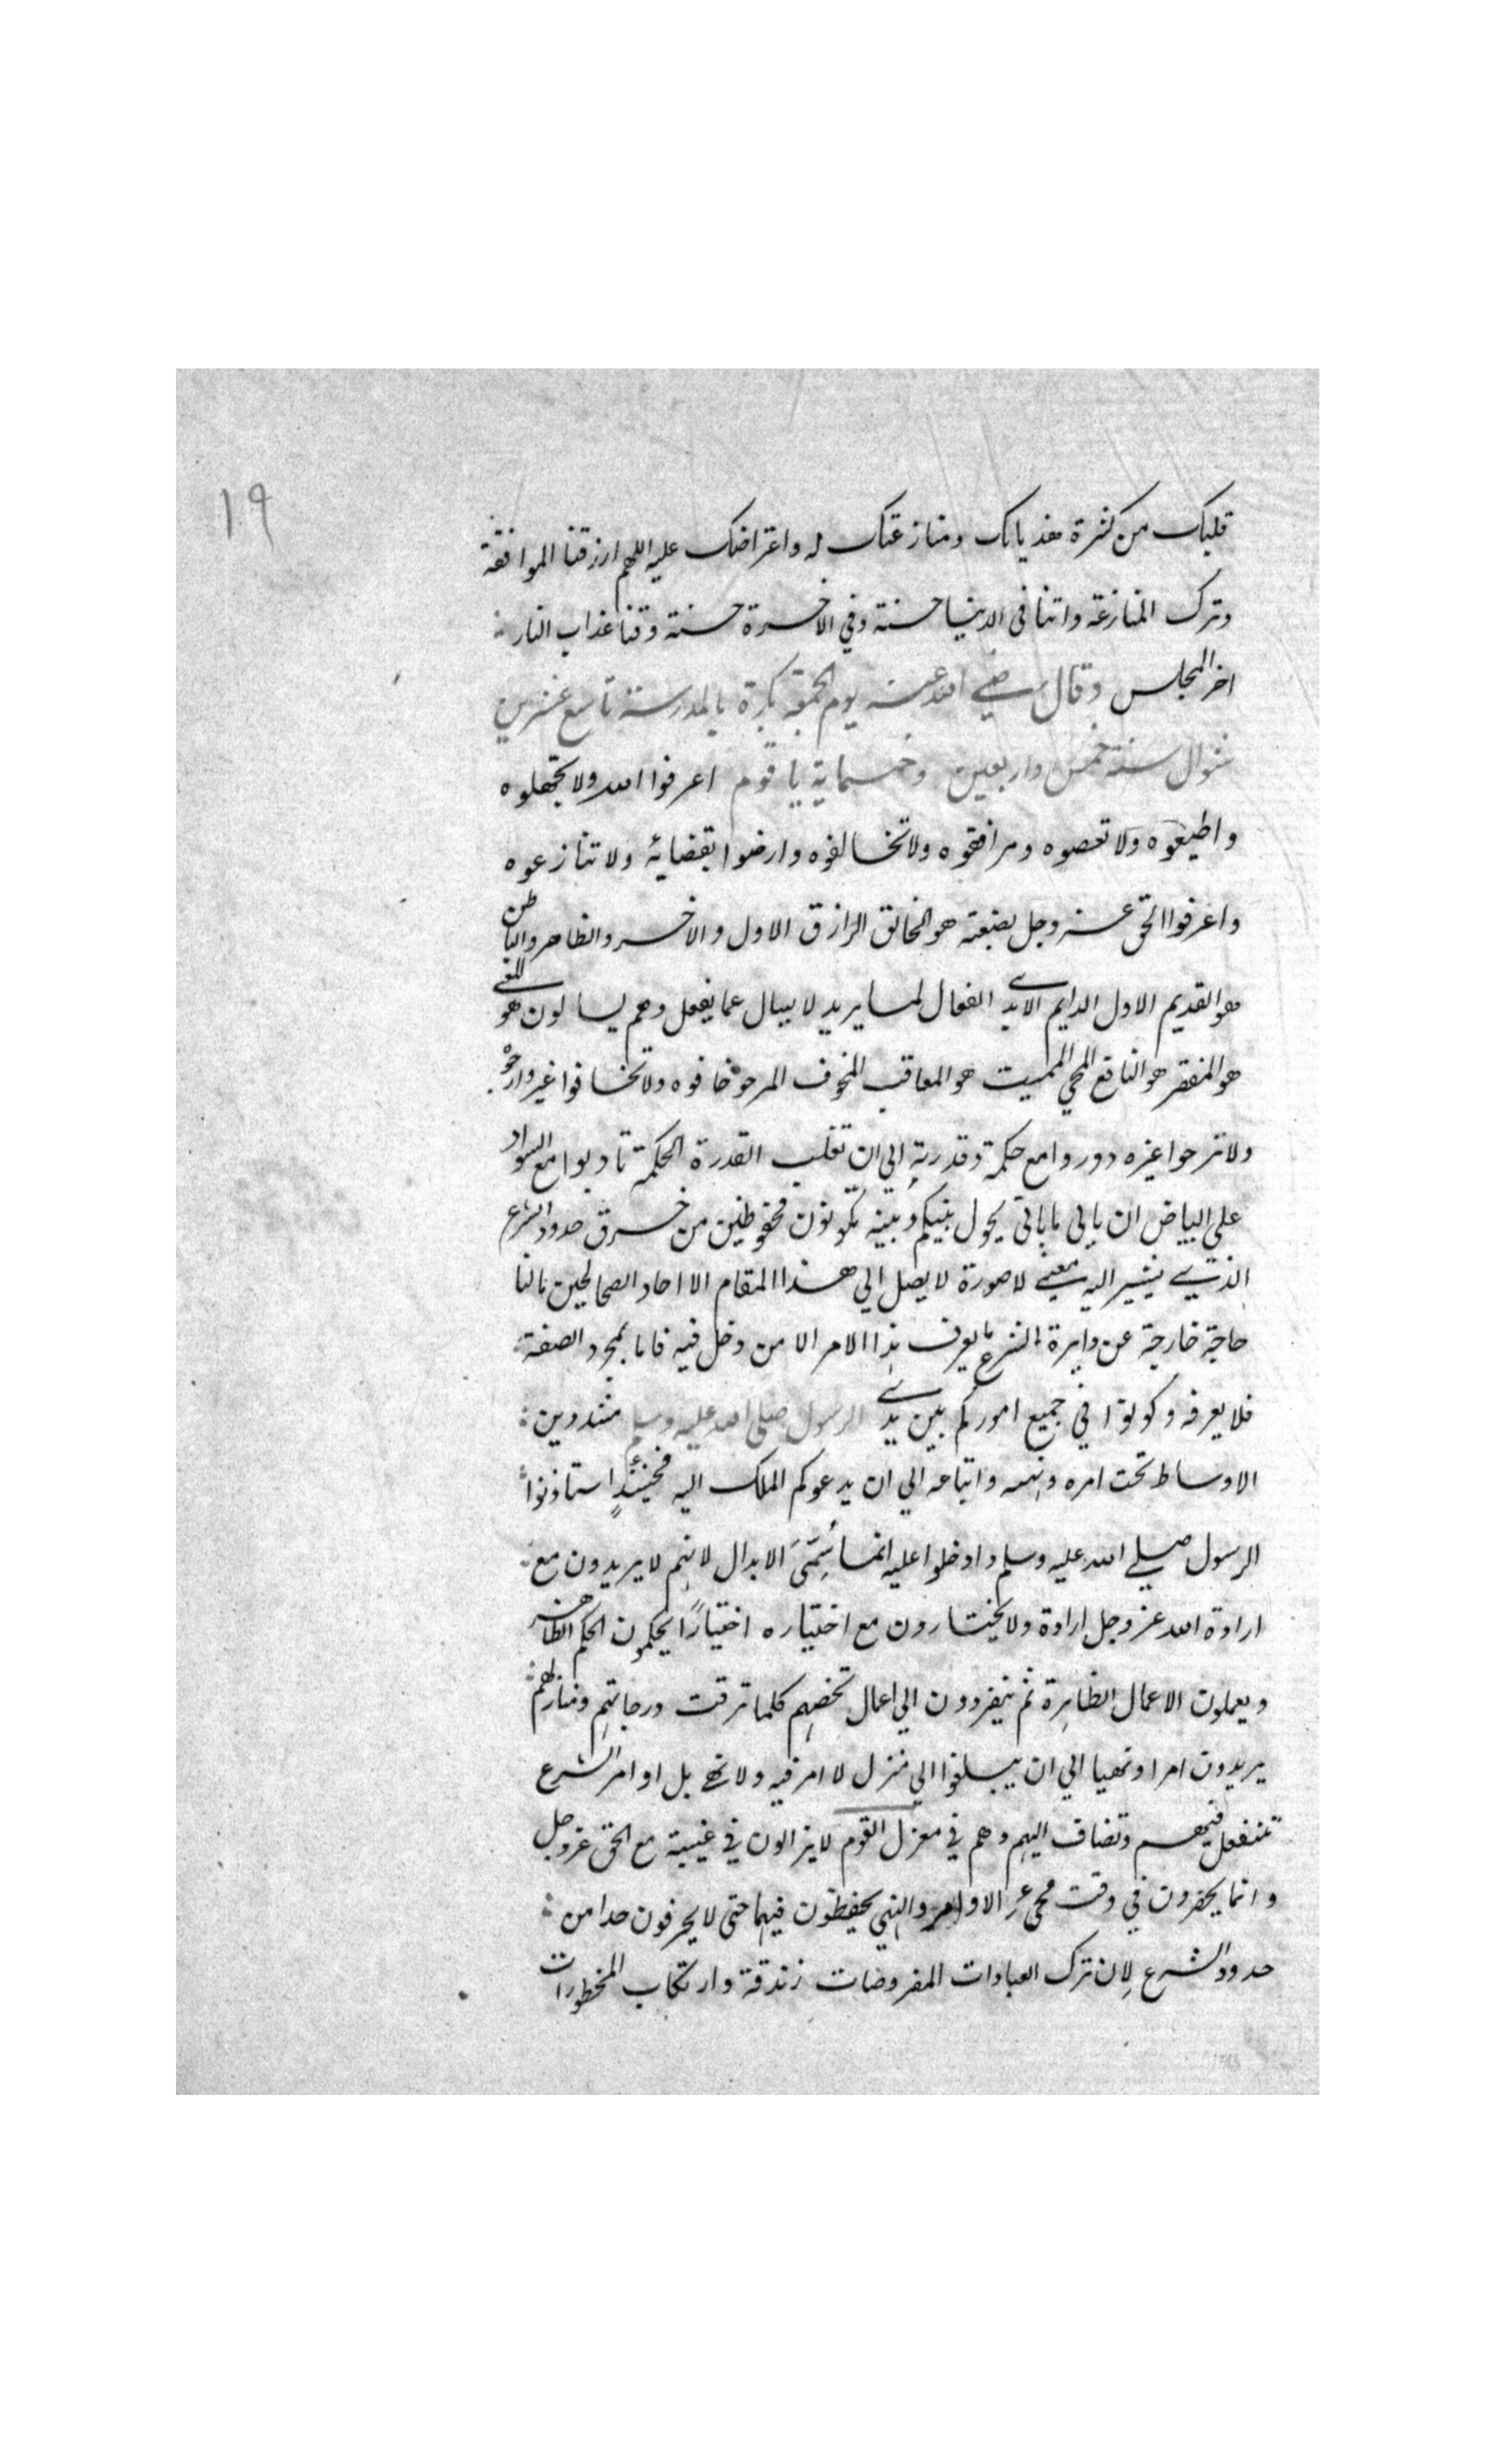 ١٩
قلبك من كثرة هذيانك ومنازعتك له واعتراضك عليه اللهم ارزقنا الموافقة
وترك المنازعة واتنا فى الدنيا حسنة وفي الاخرة حسنة وقنا عذاب النار
اخر المجلس وقال رضي الله عنه يوم الجمعة بكرة بالمدرسة تاسع عشرين
شوال سنة خمس واربعين وخمسماية يا قوم اعرفوا الله ولا تجهلوه
واطيعوه ولا تعصوه ومرافقوه ولا تخالفوه وارضوا بقضائه ولا تنازعوه
واعرفوا الحق عز وجل بصنعته هو الخالق الرازق الاول والاخر والظاهر والباطن
هو القديم الاول الدايم الابدي الفعال لما يريد لا يسال عما يفعل وهم يسالون هو المغني
هو المفقر هو النافع المحي المميت هو المعاقب المخوف المرجو خافوه ولا تخافوا غيره وارجوه
ولا ترجوا غيره دوروا مع حكمة وقدرته الى ان تغلب القدرة الحكمة تادبوا مع السواد
على البياض ان ياتى ما ياتى يحول بينكم وبينه تكونون محفوظين من خرق حدود الشرع
الذي يشير اليه معني لا صورة لا يصل الي هذا المقام الا احاد الصالحين مالنا
حاجة خارجة عن دايرة الشرع ما يعرف هذا الامر الا من دخل فيه فاما بمجرد الصفة
فلا يعرفه وكونوا في جميع اموركم بين يدي الرسول صلى الله عليه وسلم مشددين
الاوساط تحت امره ونهيه واتباعه الي ان يدعوكم الملك اليه فحينئذٍ استاذنوا
الرسول صلى الله عليه وسلم وادخلوا عليه انما سُمّيَ الابدال لانهم لا يريدون مع
ارادة الله عز وجل ارادة ولا يختارون مع اختياره اختيارًا يحكمون الحكم الظاهر
ويعملون الاعمال الظاهرة ثم ينفردون الي اعمال تخصهم كلما ترقت درجاتهم ومنازلهم
يريدون امرا ونهيا الي ان يبلغوا الي منزل لا امر فيه ولا نهي بل اوامر الشرع
تنفعل فيهم وتضاف اليهم وهم في معزل القوم لا يزالون في غيبة مع الحق عز وجل
وانما يحضرون في وقت مجي الاوامر والنهي يحفظون فيهما حتى لا يحرفون حدا من
حدود الشرع لان ترك العبادات المفروضات زندقة وارتكاب المحظورات